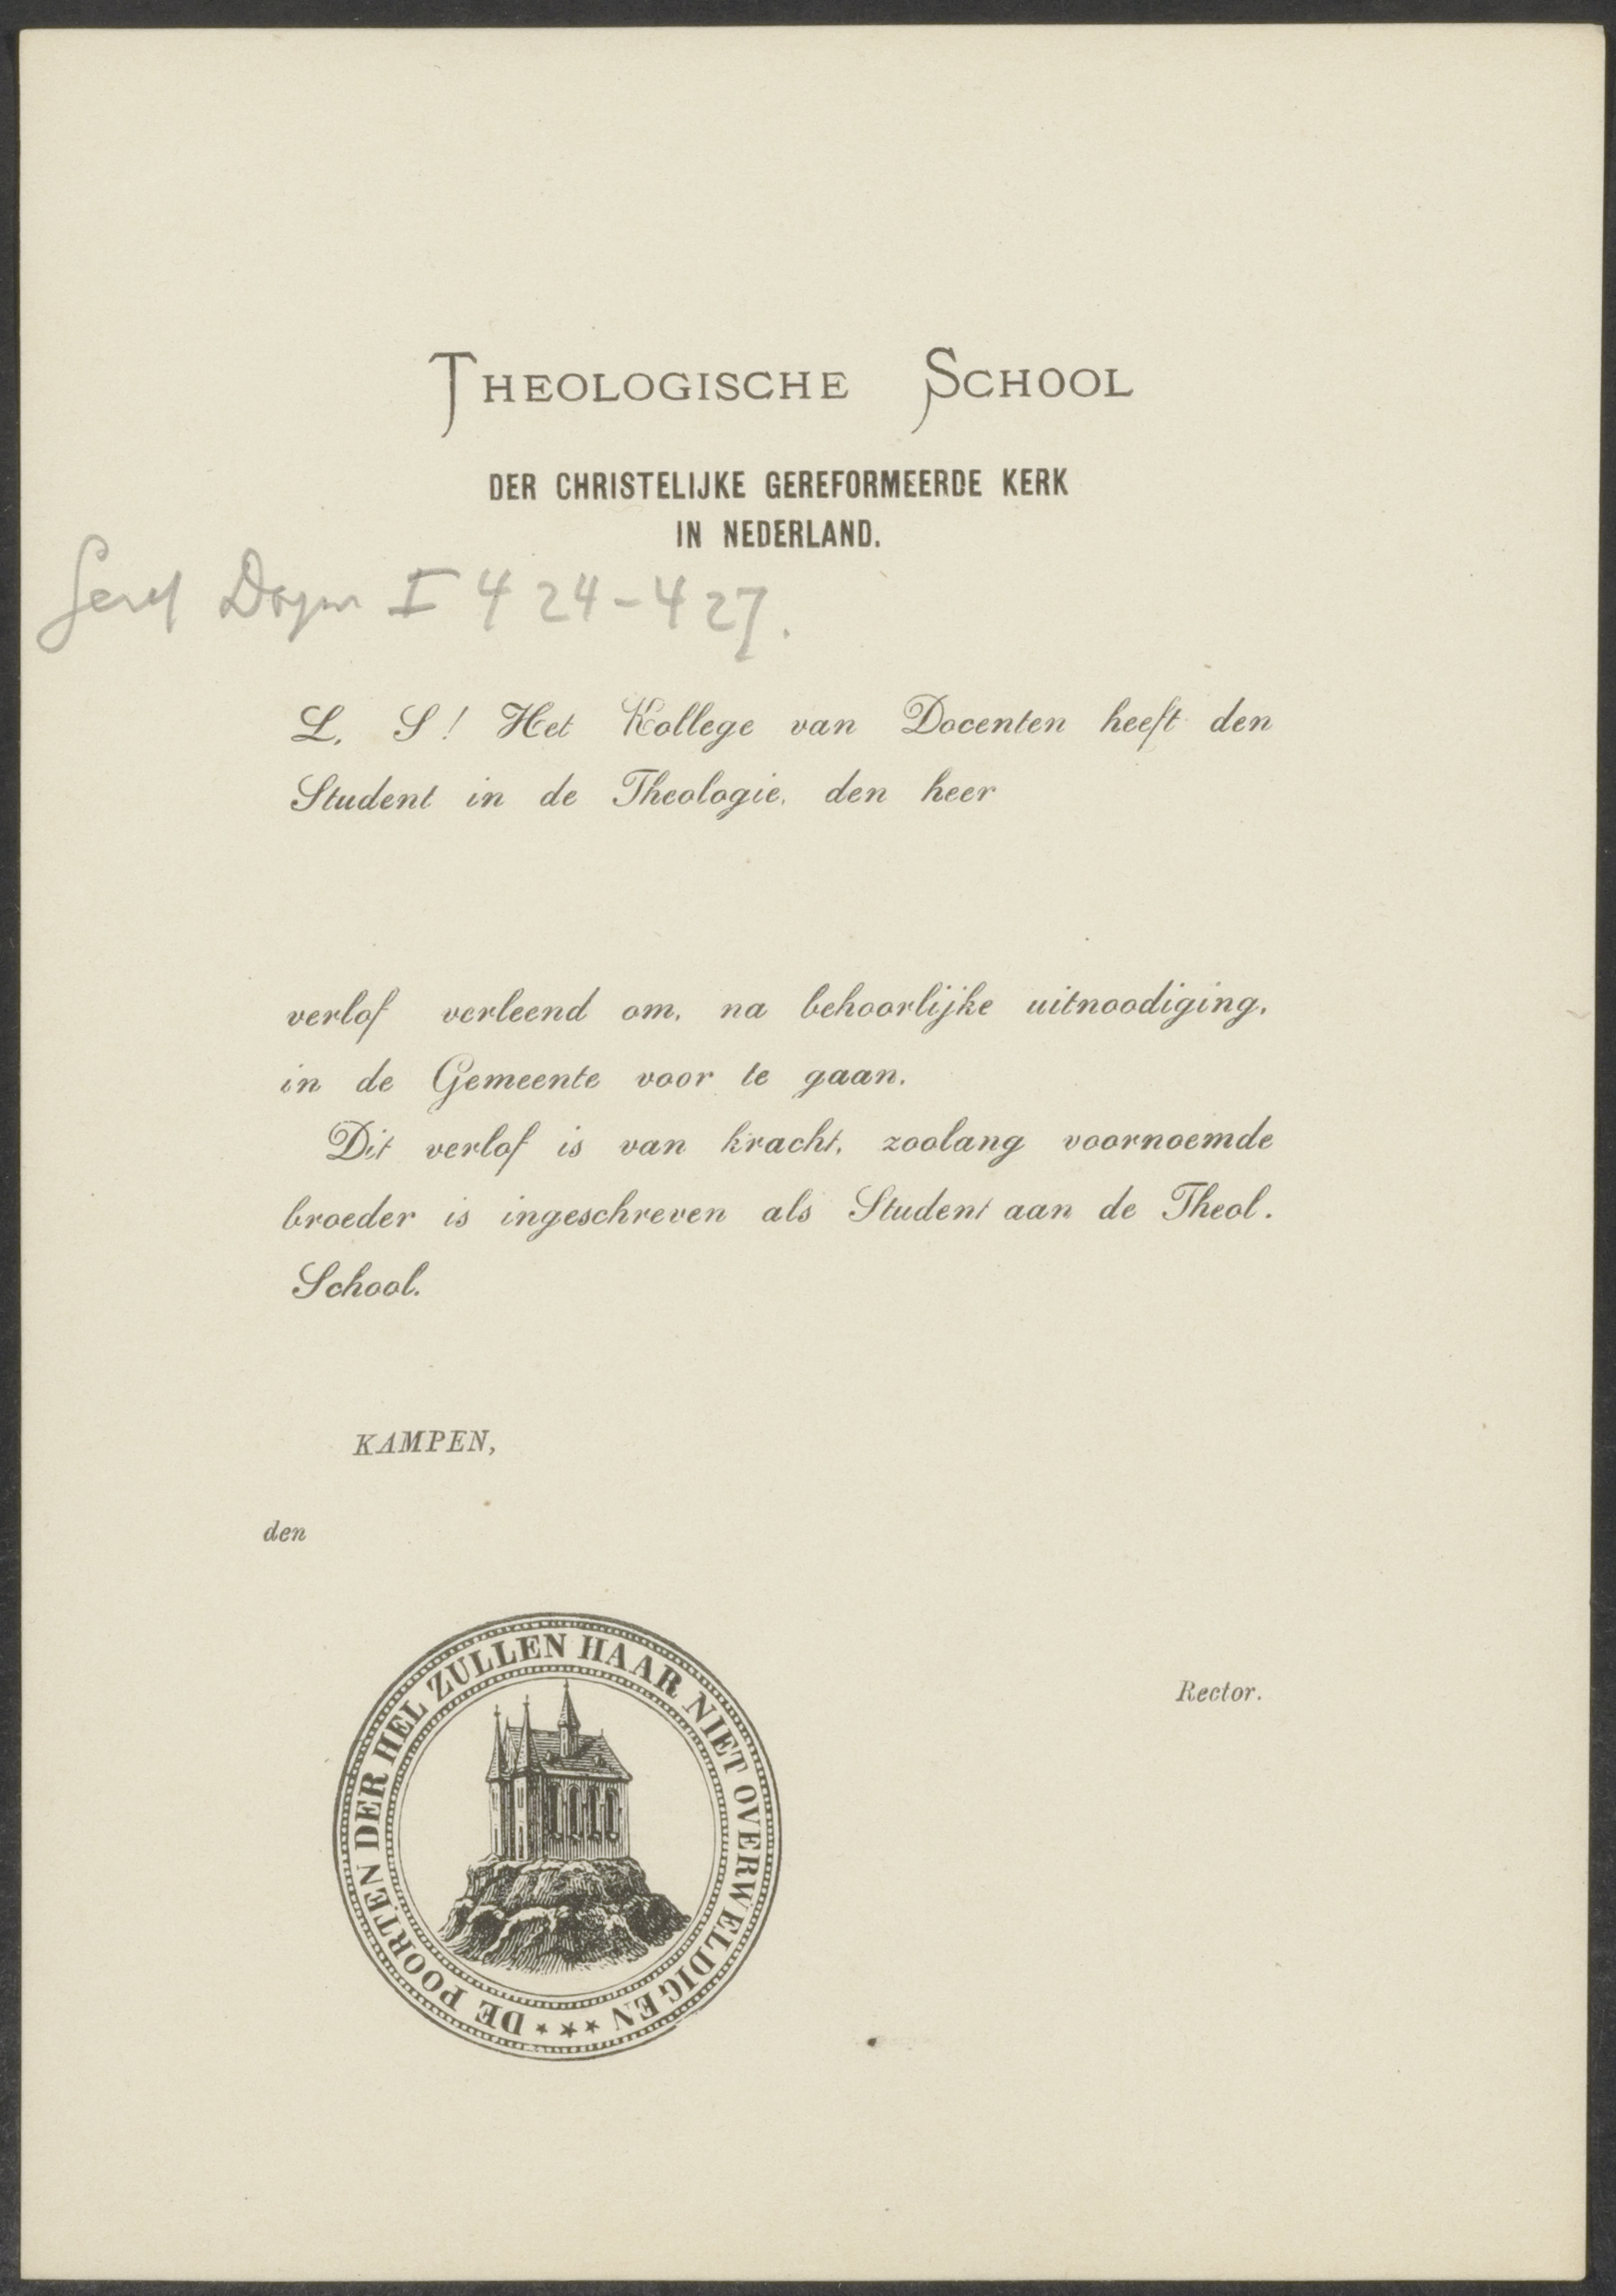 THEOLOGISCHE SCHOOL
DER CHRISTELIJKE GEREFORMEERDE KERK
IN NEDERLAND.
Geref Dogm I 424-427.
L. S! Het Kollege van Docenten heeft den
Student in de Theologie, den heer
verlof verleend om, na behoorlijke uitnoodiging,
in de Gemeente voor te gaan.
Dit verlof is van kracht, zoolang voornoemde
broeder is ingeschreven als Student aan de Theol.
School.
KAMPEN,
den
Rector.
DE POORTEN DER HEL ZULLEN HAAR NIET OVERWELDIGEN ***